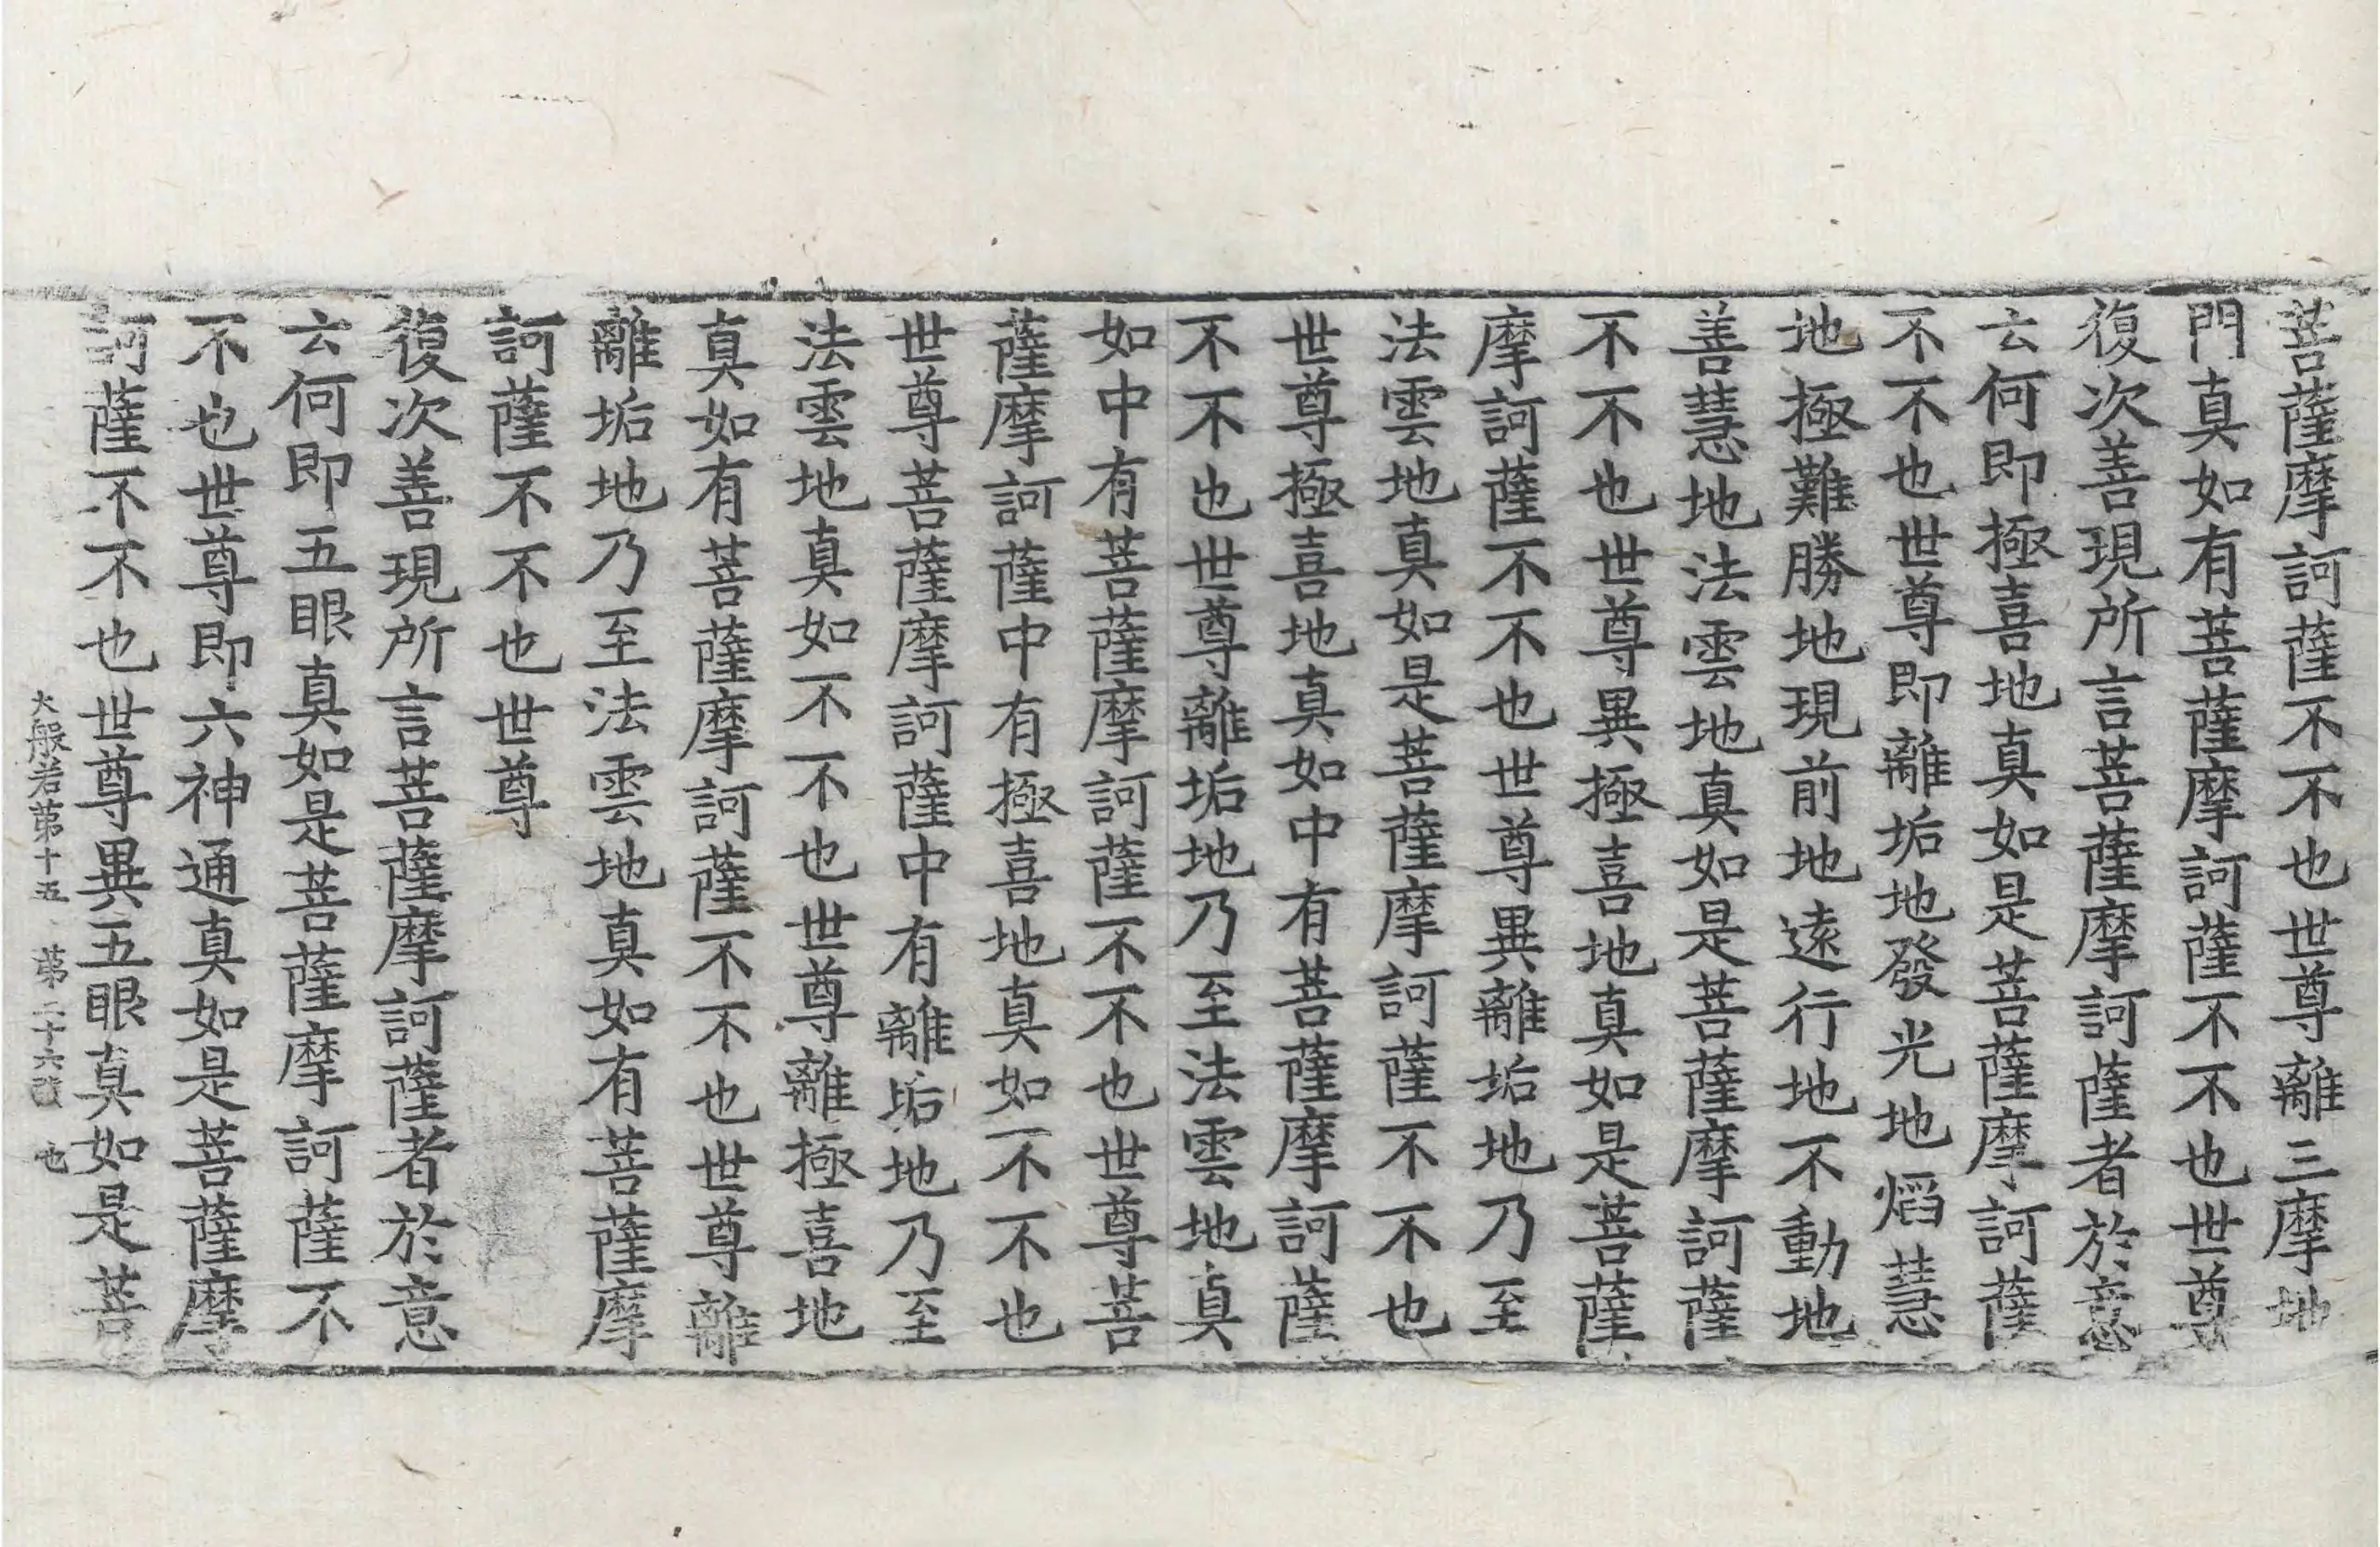 菩薩摩訶薩不不也世尊離三摩地
門真如有菩薩摩訶薩不不也世尊
復次善現所言菩薩摩訶薩者於意
云何即極喜地真如是菩薩摩訶薩
不不也世尊即離垢地發光地焰慧
地極難勝地現前地遠行地不動地
善慧地法雲地真如是菩薩摩訶薩
不不也世尊異極喜地真如是菩薩
摩訶薩不不也世尊異離垢地乃至
法雲地真如是菩薩摩訶薩不不也
世尊極喜地真如中有菩薩摩訶薩
不不也世尊離垢地乃至法雲地真
如中有菩薩摩訶薩不不也世尊菩
薩摩訶薩中有極喜地真如不不也
世尊菩薩摩訶薩中有離垢地乃至
法雲地真如不不也世尊離極喜地
真如有菩薩摩訶薩不不也世尊離
離垢地乃至法雲地真如有菩薩摩
訶薩不不也世尊
復次善現所言菩薩摩訶薩者於意
云何即五眼真如是菩薩摩訶薩不
不也世尊即六神通真如是菩薩摩
訶薩不不也世尊異五眼真如是菩
大般若第十五 第二十六張 也